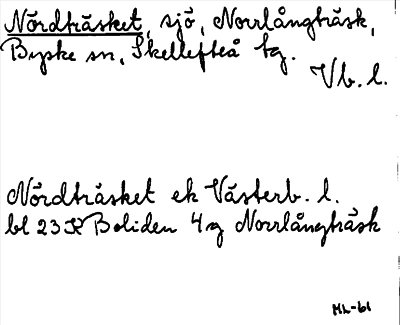 Nördträsket, sjö, Norrlångträsk,
Byske sn, Skellefteå tg.
Vb. l.
Nördträsket ek Västerb. l.
bl 23 K Boliden 4 g Norrlångträsk
ML-61